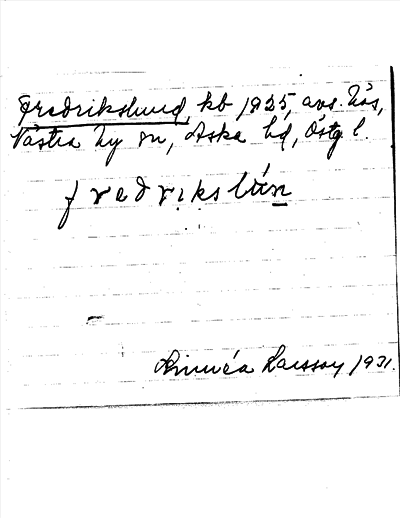 Fredrikslund, kb 1825, avs. hås,
Västra Ny sn, Aska hd, Östg l.
fredrikslún
Linnéa Larsson 1931.